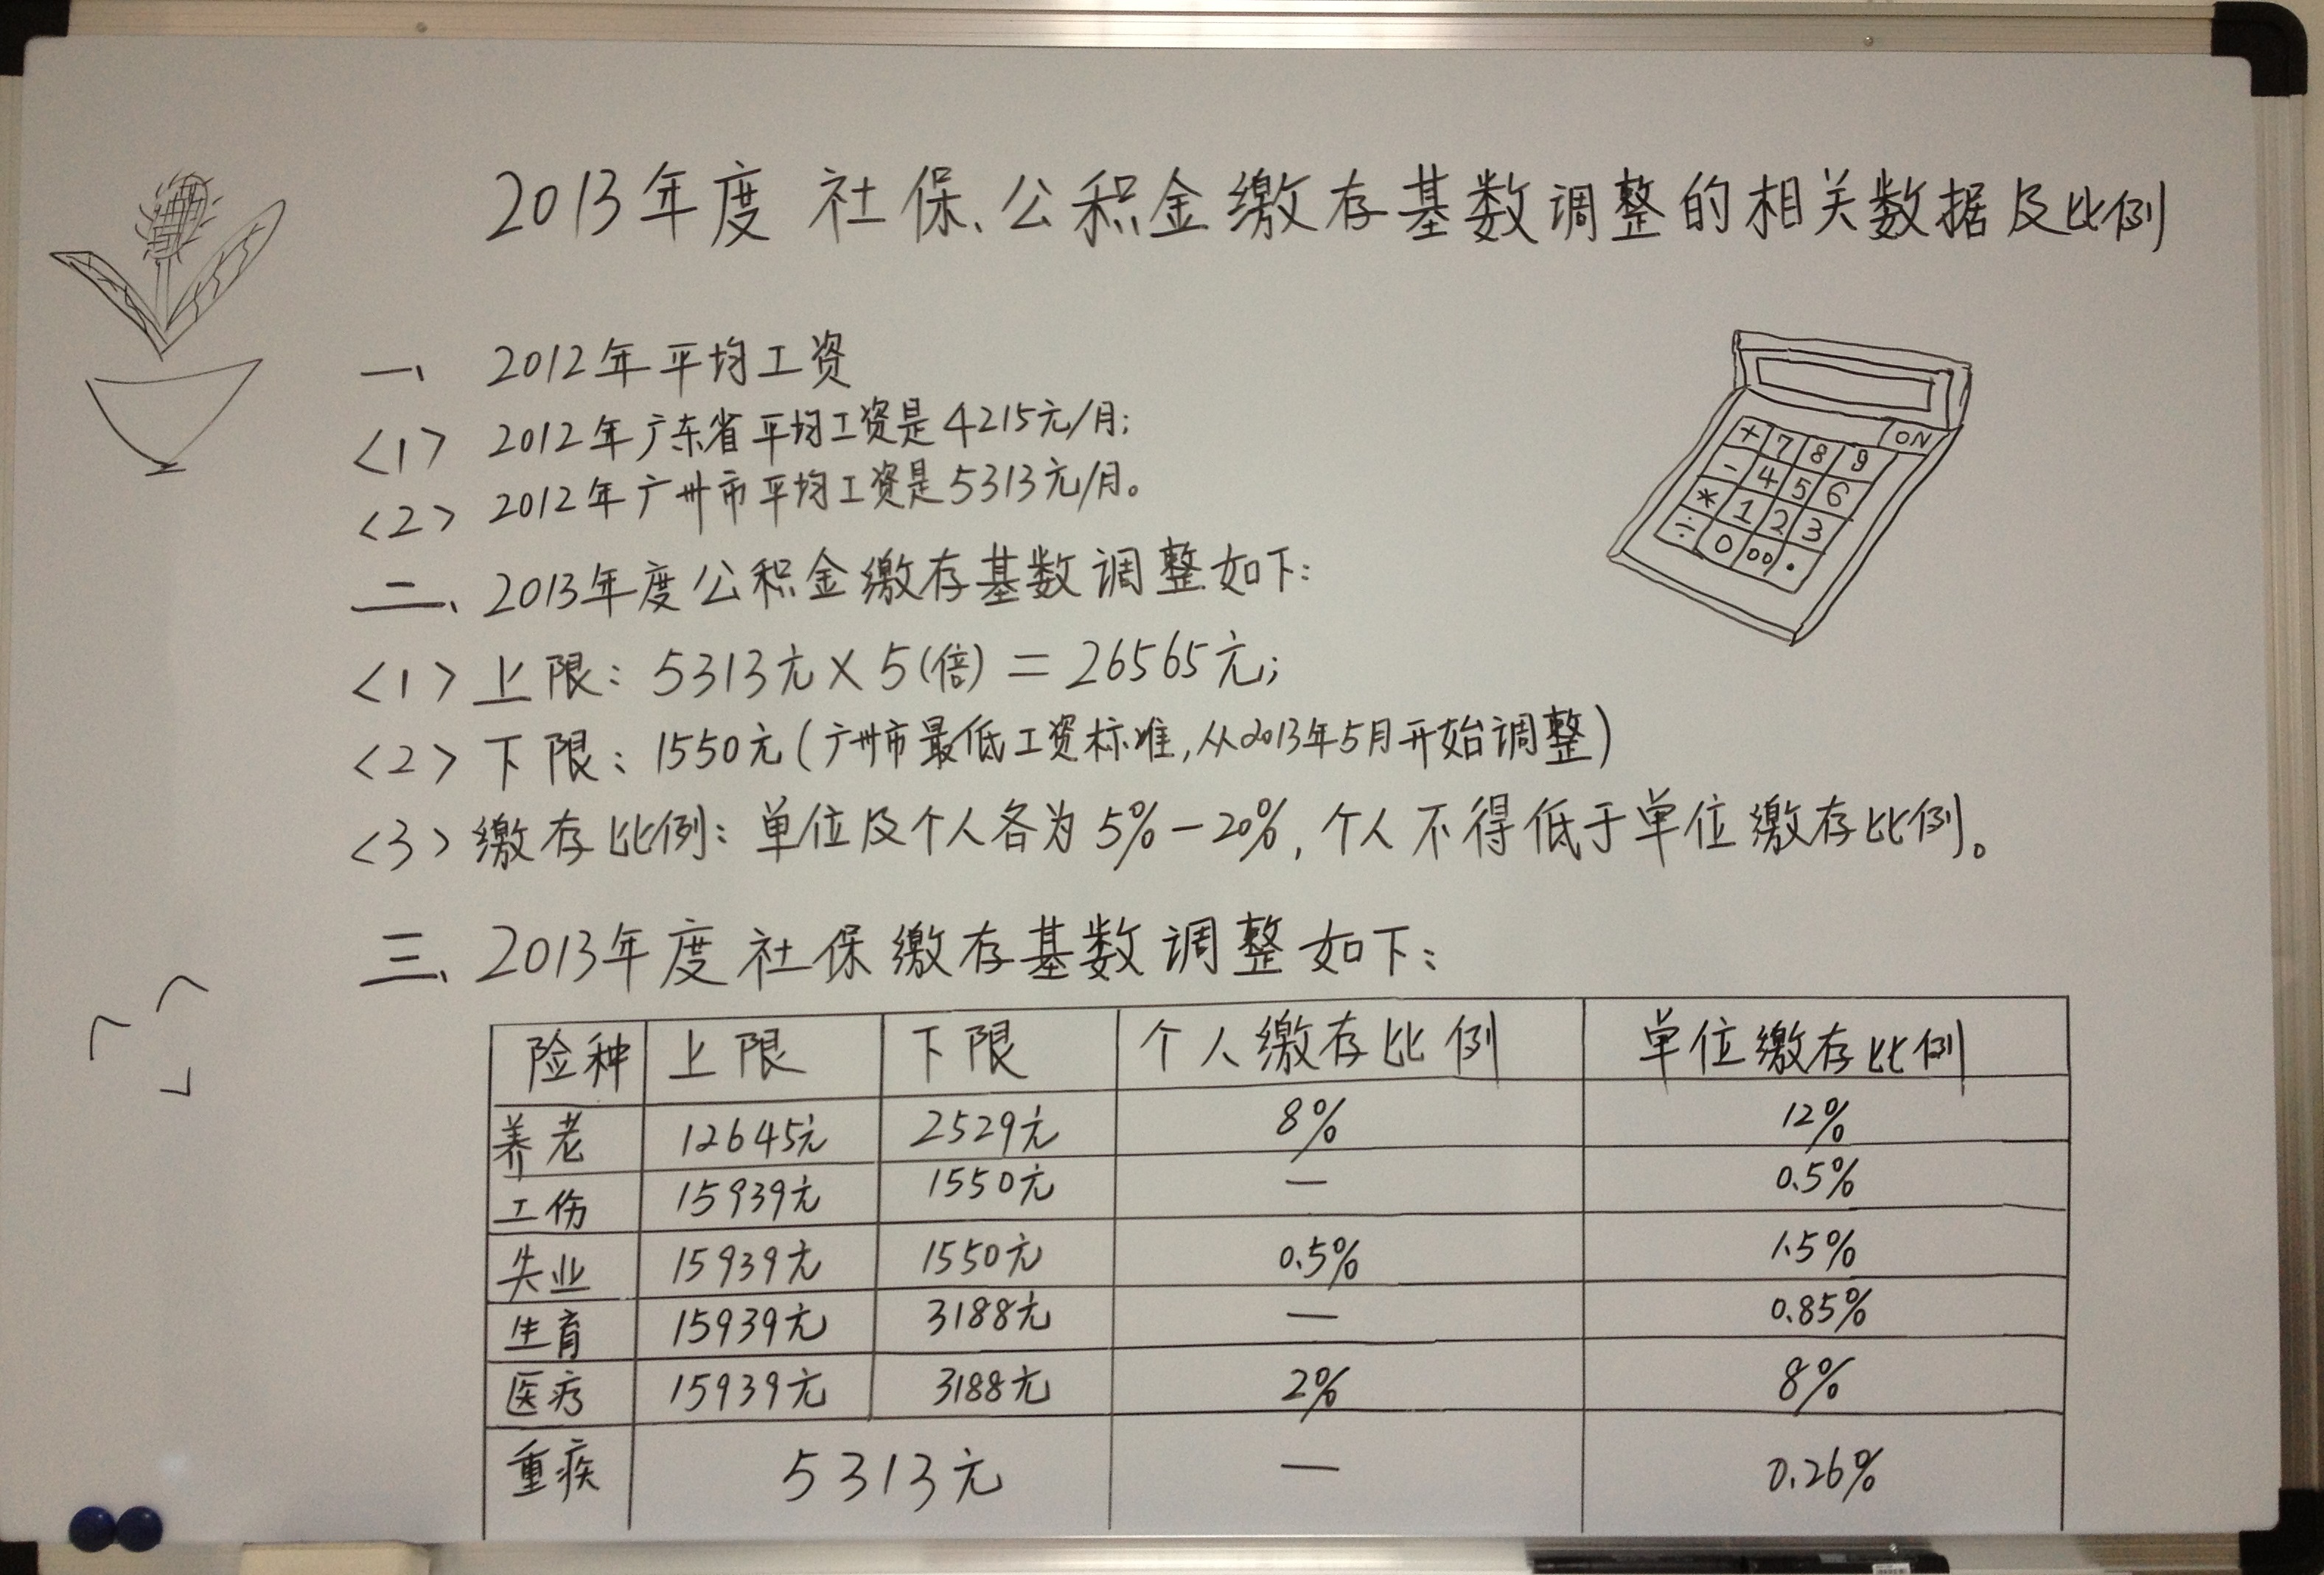 2013年度 社保、公积金缴存基数调整的相关数据及比例
一、 2012年平均工资
<1> 2012年广东省平均工资是4215元/月;
<2> 2012年广州市平均工资是5313元/月。
二、2013年度公积金缴存基数调整如下:
<1> 上限: 5313元×5(倍) = 26565元;
<2> 下限: 1550元(广州市最低工资标准,从2013年5月开始调整)
<3> 缴存比例: 单位及个人各为5%-20%,个人不得低于单位缴存比例。
三、2013年度社保缴存基数调整如下:
险种 上限 下限 个人缴存比例 单位缴存比例
养老 12645元 2529元 8% 12%
工伤 15939元 1550元 — 0.5%
失业 15939元 1550元 0.5% 1.5%
生育 15939元 3188元 — 0.85%
医疗 15939元 3188元 2% 8%
重疾 5313元 — 0.26%
ON
+ 7 8 9
- 4 5 6
* 1 2 3
÷ 0 00 .